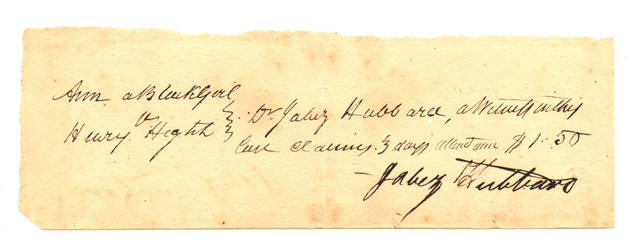 Ann a Black Girl
vs
Henry Hight
Dr. Jabez Hubbard, a Witness in this
Case claims 3 days attendance $1.50
Jabez Hubbard